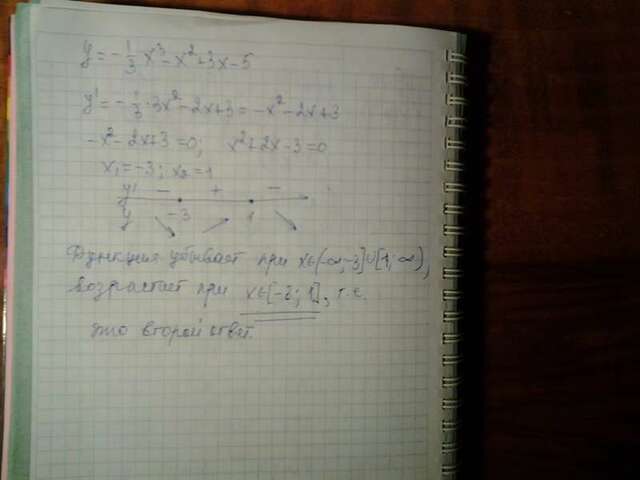 y = -1/3 x³ - x² + 3x - 5
y' = -1/3 · 3x² - 2x + 3 = -x² - 2x + 3
-x² - 2x + 3 = 0; x² + 2x - 3 = 0
x₁ = -3; x₂ = 1
y' - + -
y -3 1
Функция убывает при x∈(-∞;-3]∪[1;∞),
возрастает при x∈[-2; 1], т.е.
это второй ответ.